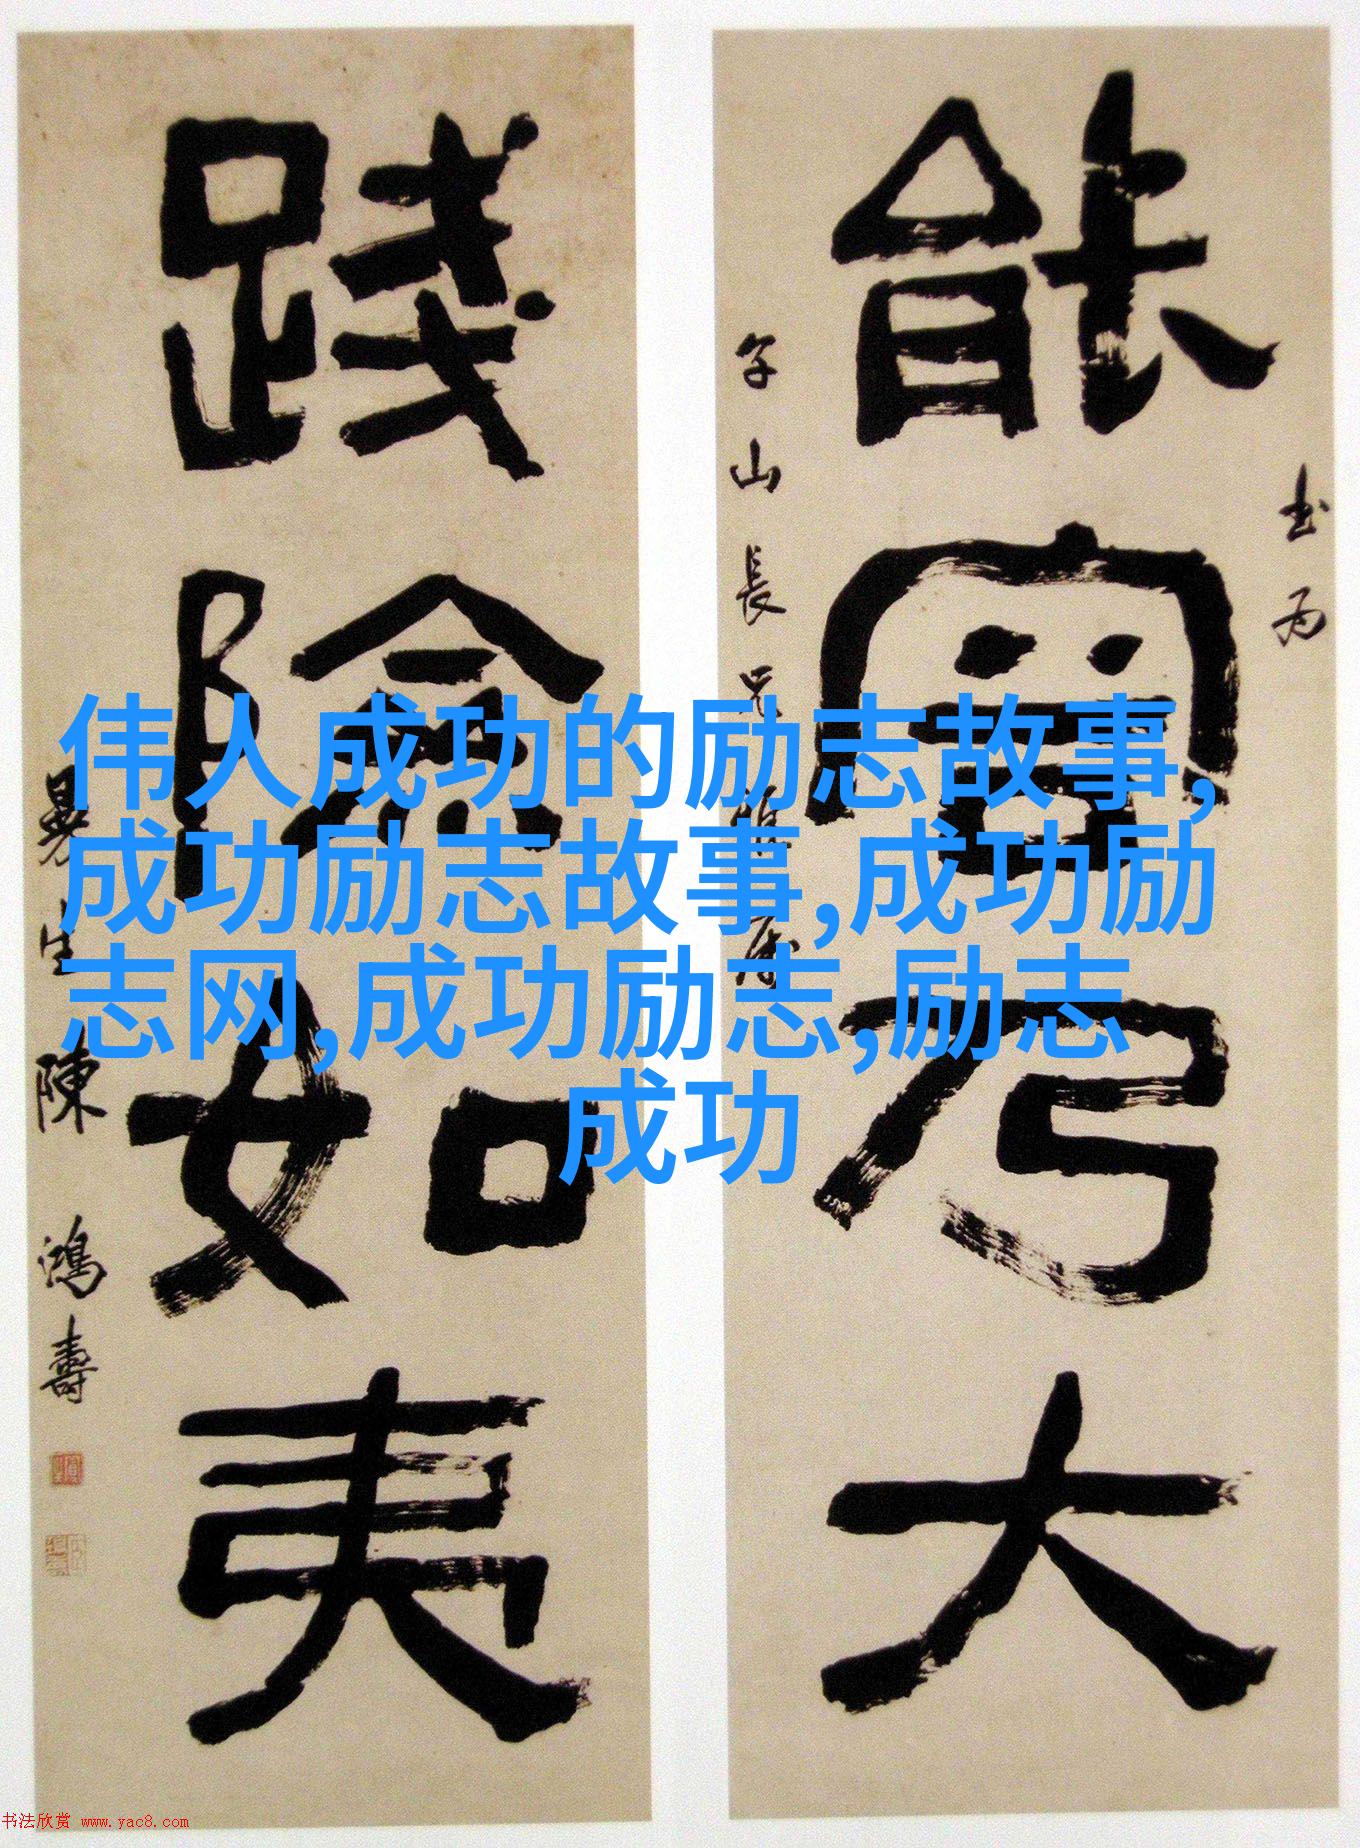 能富乃大
書為
午山長兄
踐險如夷
曼生陳鴻壽
伟人成功的励志故事,
成功励志故事,成功励
志网,成功励志,励志
成功
书法欣赏 www.yac8.com